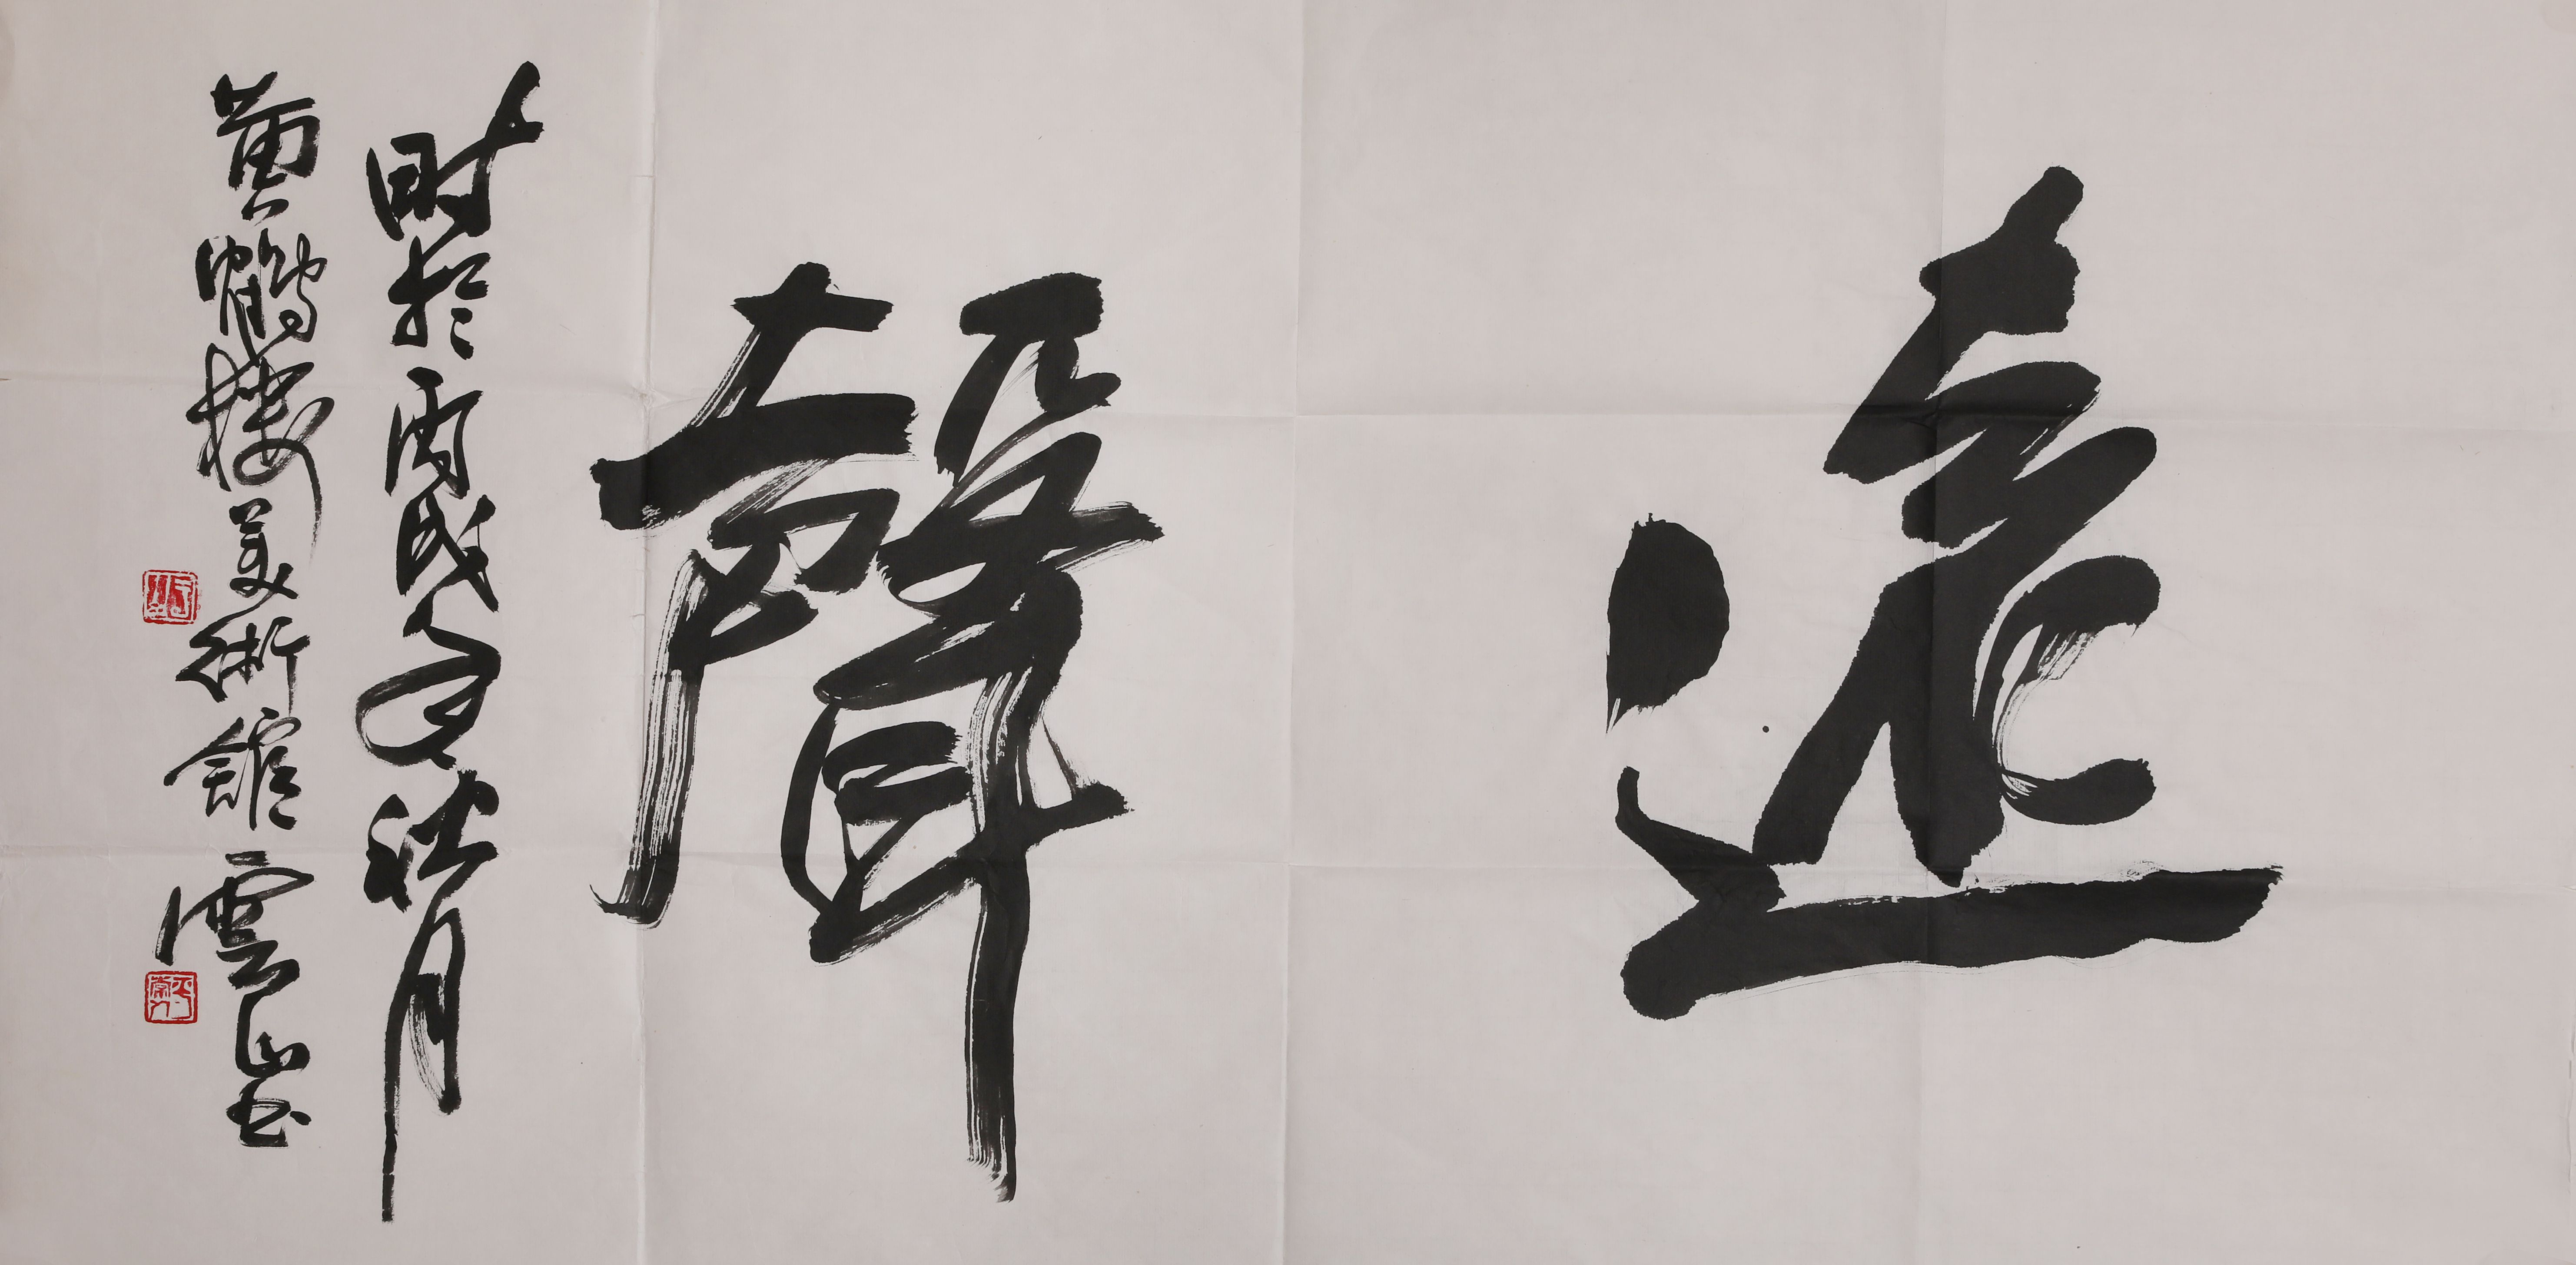 遠聲
時於丙戌年秋月
黃鶴樓美術館雲山書